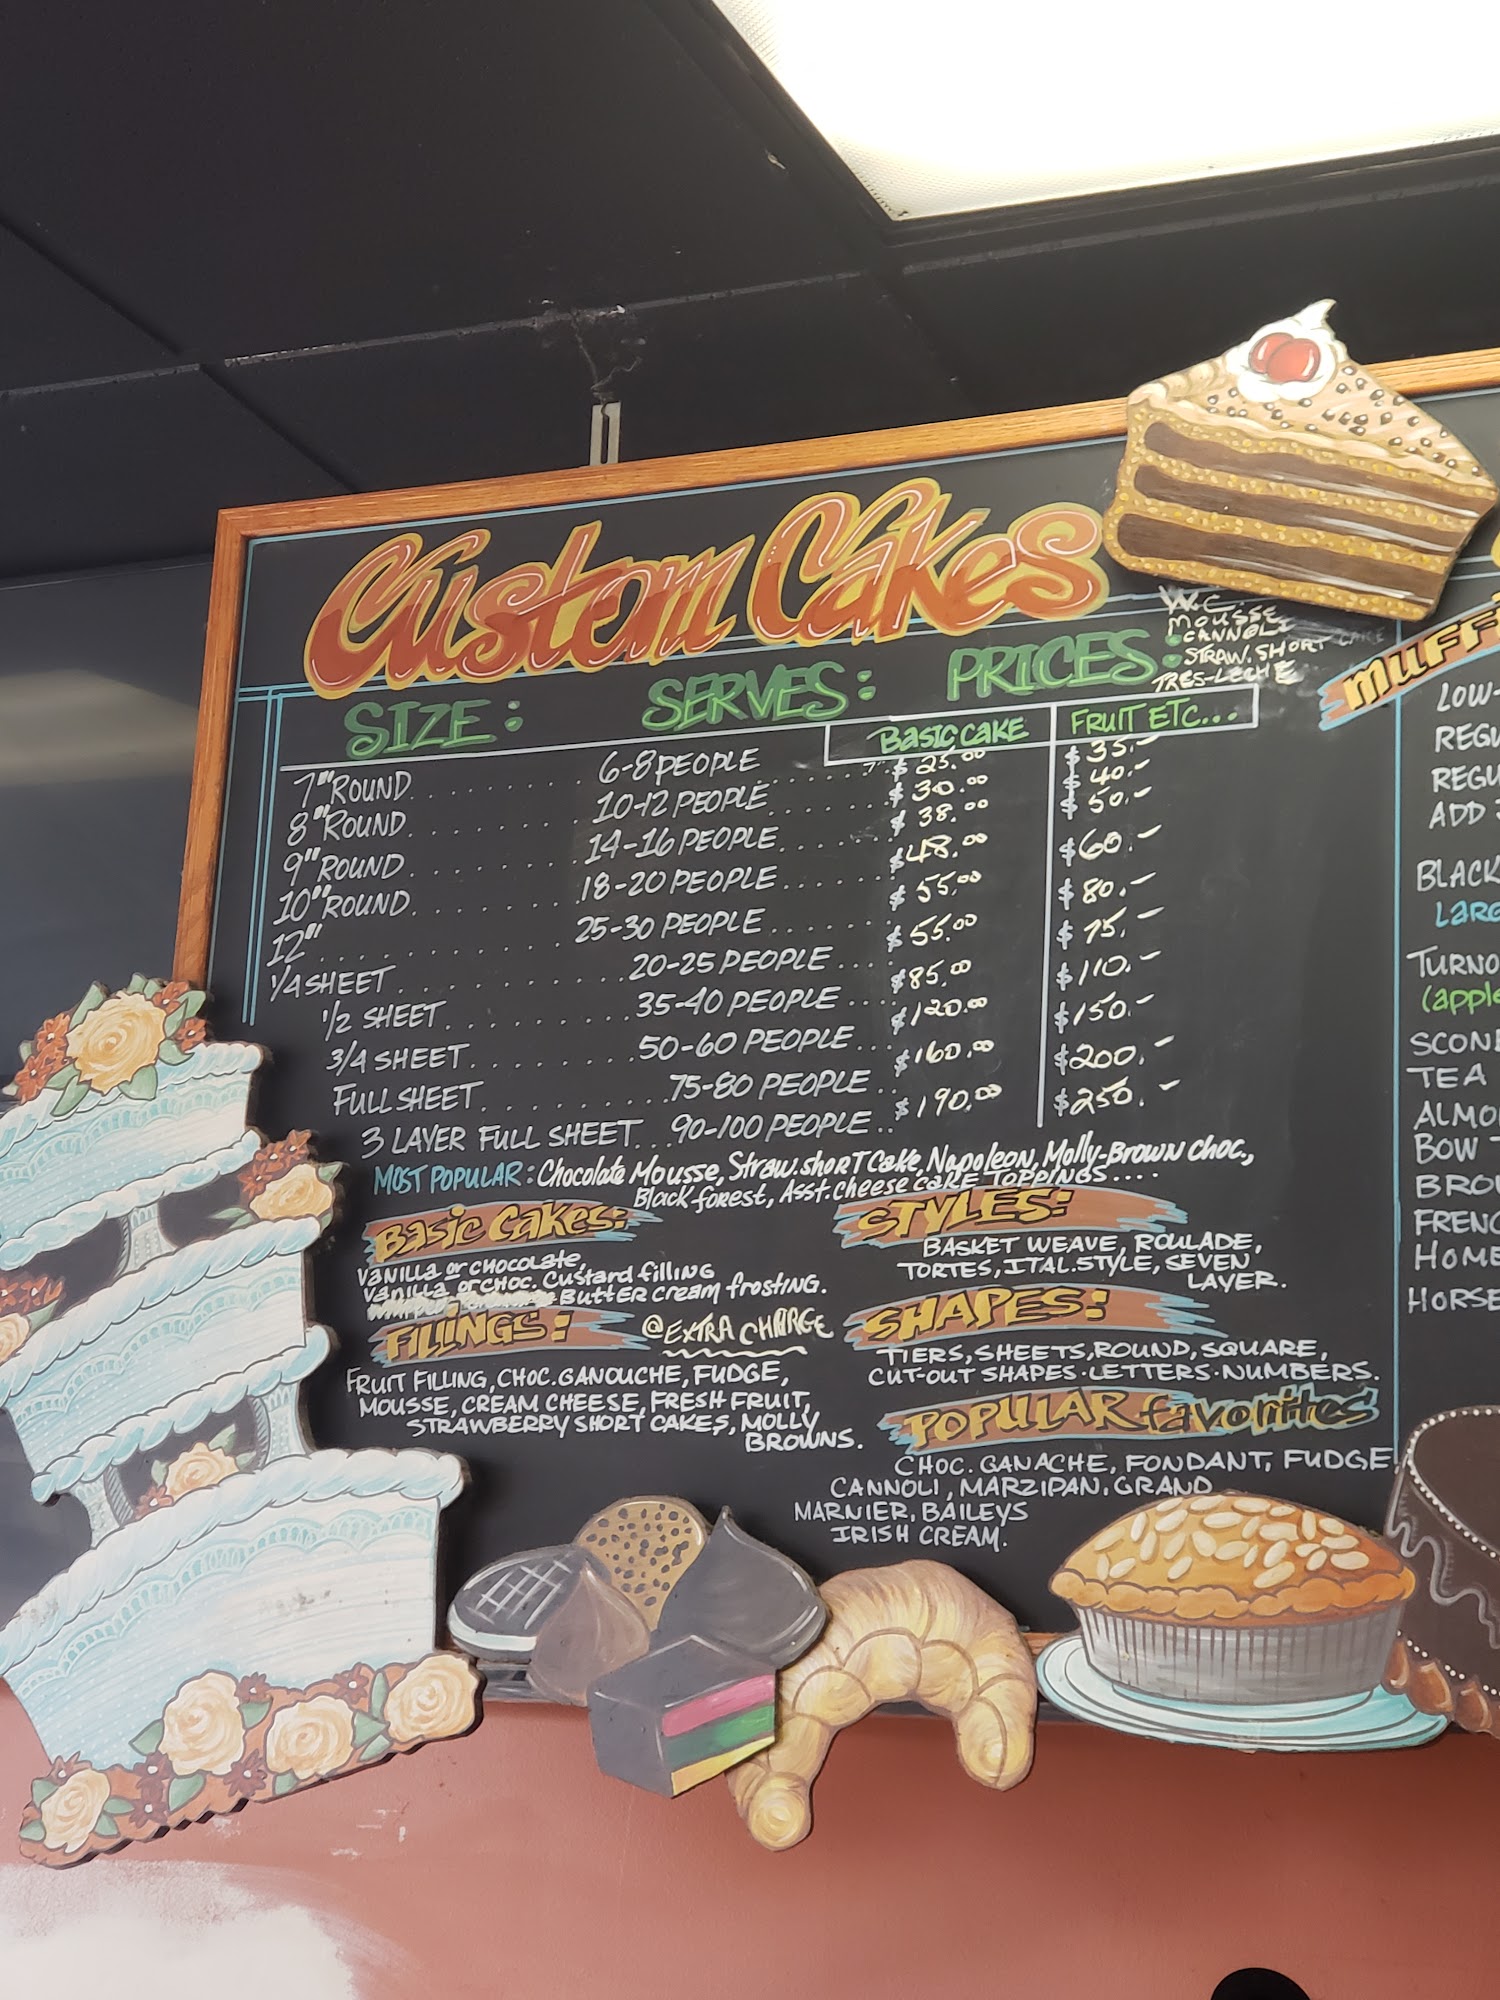 Custom Cakes
WE
MOUSSE
CANNOLI
STRAW. SHORT CAKE
TRES-LECHE
SIZE: SERVES: PRICES:
BASIC CAKE FRUIT ETC...
7" ROUND........ 6-8 PEOPLE ........ $25.00 $35.-
8" ROUND........ 10-12 PEOPLE ........ $30.00 $40.-
9" ROUND........ 14-16 PEOPLE ........ $38.00 $50.-
10" ROUND........ 18-20 PEOPLE ........ $48.00 $60.-
12"........ 25-30 PEOPLE ........ $55.00 $80.-
1/4 SHEET........ 20-25 PEOPLE .... $55.00 $75.-
1/2 SHEET........ 35-40 PEOPLE .... $85.00 $110.-
3/4 SHEET........ 50-60 PEOPLE ... $120.00 $150.-
FULL SHEET........ 75-80 PEOPLE .. $160.00 $200.-
3 LAYER FULL SHEET... 90-100 PEOPLE .. $190.00 $250.-
MOST POPULAR: Chocolate Mousse, Straw.short Cake, Napoleon, Molly-Brown choc.,
Black forest, Asst. cheese cake TOPPINGS....
Basic Cakes:
Vanilla or chocolate,
Vanilla or choc. Custard filling
Butter cream frosting.
FILLINGS: @ EXTRA CHARGE
FRUIT FILLING, CHOC. GANOUCHE, FUDGE,
MOUSSE, CREAM CHEESE, FRESH FRUIT,
STRAWBERRY SHORT CAKES, MOLLY
BROWNS.
STYLES:
BASKET WEAVE, ROULADE,
TORTES, ITAL. STYLE, SEVEN
LAYER.
SHAPES:
TIERS, SHEETS, ROUND, SQUARE,
CUT-OUT SHAPES·LETTERS·NUMBERS.
POPULAR favorites
CHOC. GANACHE, FONDANT, FUDGE
CANNOLI, MARZIPAN, GRAND
MARNIER, BAILEYS
IRISH CREAM.
MUFF
LOW-
REGU
REGU
ADD
BLACK
LARG
TURNO
(apple
SCON
TEA
ALMO
BOW T
BRO
FRENC
HOME
HORSE